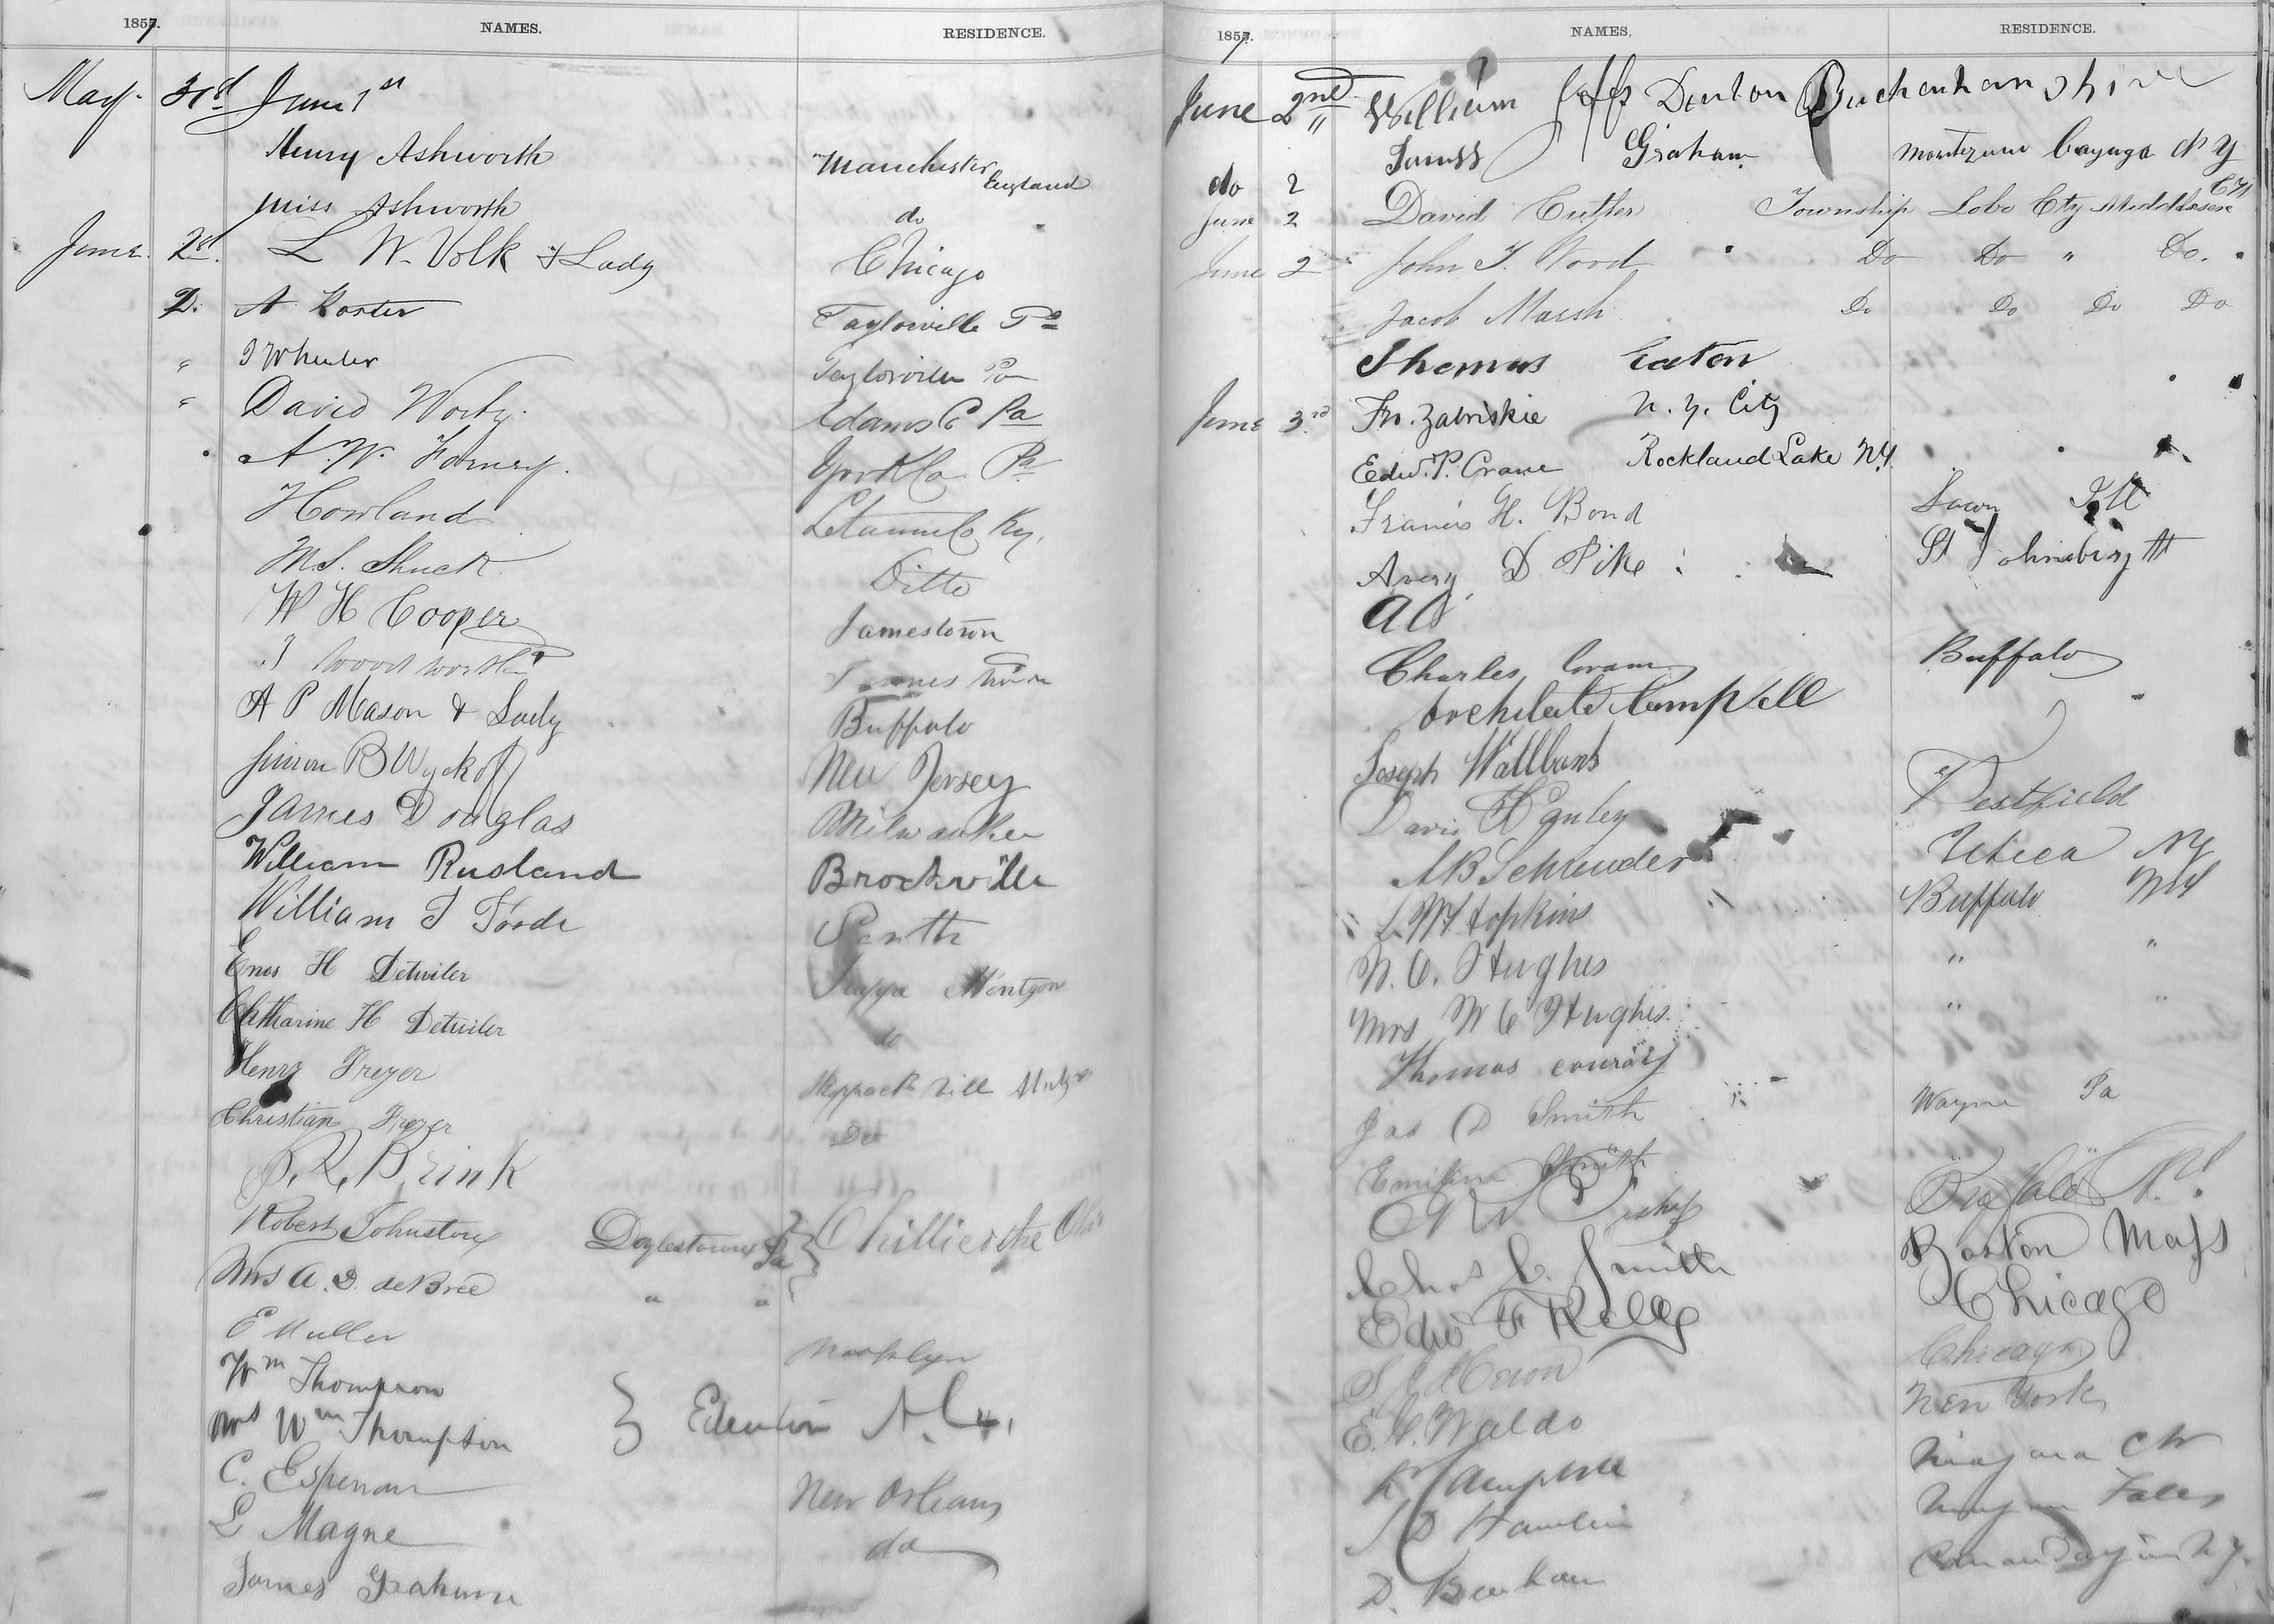 1857. NAMES. RESIDENCE.
May 31st June 1st
Henry Ashworth Manchester England
Miss Ashworth do
June 2d. L W. Volk & Lady Chicago
2. A Koster Taylorville Pa
" J Wheeler Taylorville Pa
" David Worty. Adams Co Pa
A. W. Forney. York Co. Pa
Howland Ky.
M.S. Shuck Ditto
W H Cooper Jamestown
J Woodworth Jamestown
A P Mason & Lady Buffalo
Simon B Wyckoff New Jersey
James Douglas Milwaukee
William Rusland Brockville
William J Foode Perth
Enos H Detwiler Montgom
Catharine H Detwiler do
Henry Freyer Skippack vill
Christian Freyer Do
R. Brink Chillicothe Ohio
Robert Johnston Doylestown Pa
Mrs A. D. deBree " "
E Muller Brooklyn
Wm Thompson
Mrs Wm Thompson Edenton N.C.
C. Espenan New Orleans
L Magne do
James Graham
1857. NAMES. RESIDENCE.
June 2nd William Joffs Denton Buckenhamshire
" James Graham Montezuma Cayuga N Y
do 2
June 2 David Cutler Township Lobo Cty Middlesex C W
June 2 John T. Wood Do Do " Do.
Jacob Marsh Do Do Do Do
Thomas Eaton
June 3rd Fr. Zabriskie N. Y. City
Edw. P. Crane Rockland Lake N.Y.
Francis H. Bond
Avery D Pike St Johnsbury Vt
AC
Charles Coram Buffalo
Archibald Campbell
Joseph Wallbank
Davis Westfield
A B Schreuder Utica NY
L. W. Hopkins Buffalo NY
W. C. Hughes " "
Mrs W C Hughes " "
Thomas conroy
Jas D Smith Wayne Pa
Emiline Smith
Buffalo N.Y.
Chas C. Smith Boston Mass
Edw F Kelly Chicago
S Chicago
E. C. Waldo New York
K Campbell Niagara CW
S D Hamlin Niagara Falls
D. Benham Canandaigua N Y.